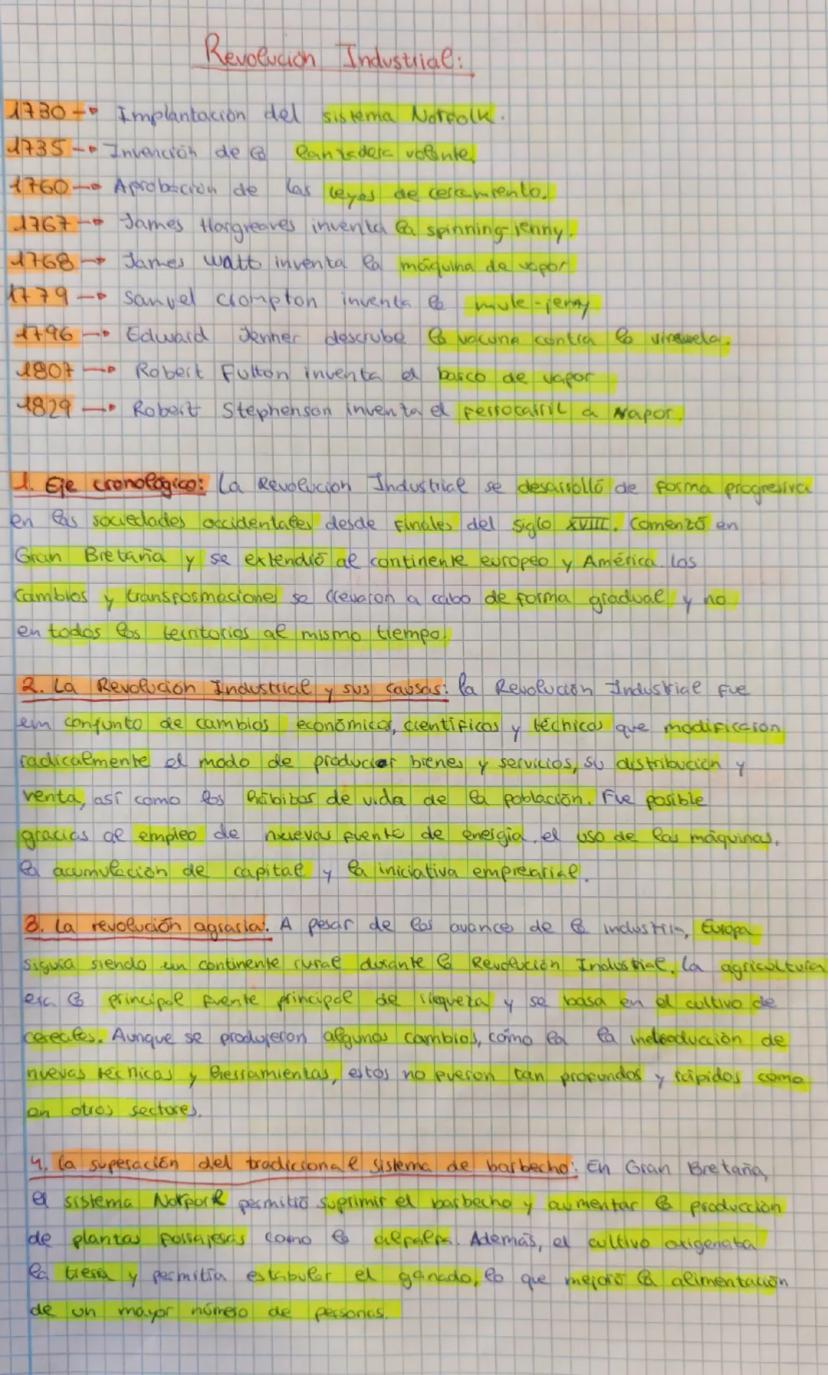 Revolución Industrial:
1730 → Implantación del sistema Norfolk.
1735 → Invención de la lanzadera volante.
1760 → Aprobación de las leyes de cercamiento.
1767 → James Hargreaves inventa la spinning-jenny.
1768 → James Watt inventa la máquina de vapor
1779 → Samuel Crompton inventa la mule-jenny
1796 → Edward Jenner descrube la vacuna contra la viruela.
1807 → Robert Fulton inventa el barco de vapor
1829 → Robert Stephenson inventa el ferrocarril a vapor.
1. Eje cronológico: La Revolución Industrial se desarrolló de forma progresiva
en las sociedades occidentales desde finales del siglo XVIII. Comenzó en
Gran Bretaña y se extendió al continente europeo y América. Los
cambios y transformaciones se llevaron a cabo de forma gradual y no
en todos los territorios al mismo tiempo.
2. La Revolución Industrial y sus causas: la Revolución Industrial fue
un conjunto de cambios económicos, científicos y técnicos que modificaron
radicalmente el modo de producir bienes y servicios, su distribución y
venta, así como los hábitos de vida de la población. Fue posible
gracias al empleo de nuevas fuente de energía, el uso de las máquinas,
la acumulación de capital y la iniciativa empresarial.
3. La revolución agraria: A pesar de los avances de la industria, Europa
siguía siendo un continente rural durante la Revolución Industrial. La agricultura
era la principal fuente principal de riqueza y se basa en el cultivo de
cereales. Aunque se produjeron algunos cambios, cómo la la indroducción de
nuevas técnicas y herramientas, estos no fueron tan profundos y rápidos como
en otros sectores.
4. La superación del tradiccional sistema de barbecho: En Gran Bretaña,
el sistema Norfolk permitió suprimir el barbecho y aumentar la producción
de plantas forrajeras como la alfalfa. Además, el cultivo oxigenaba
la tierra y permitía estabular el ganado, lo que mejoró la alimentación
de un mayor número de personas.